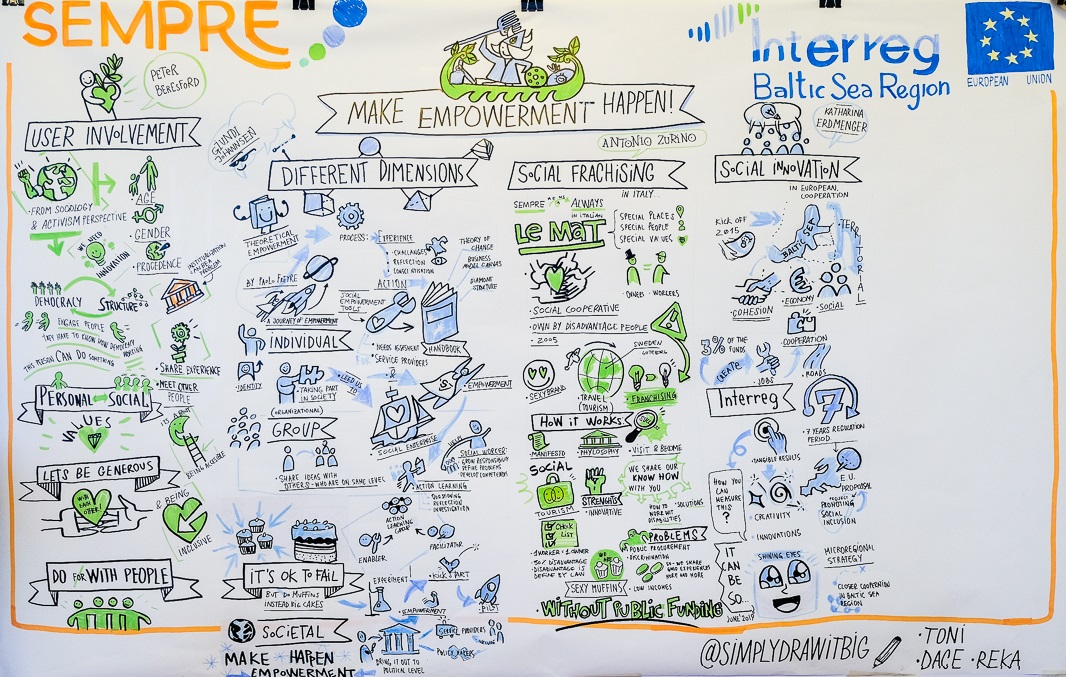 SEMPRE
Interreg
Baltic Sea Region
EUROPEAN UNION
MAKE EMPOWERMENT HAPPEN!
PETER
BERESFORD
USER INVOLVEMENT
FROM SOCIOLOGY
& ACTIVISM PERSPECTIVE
AGE
GENDER
PROCEDENCE
WE NEED
INNOVATION
DEMOCRACY
STRUCTURE
ENGAGE PEOPLE
THEY HAVE TO KNOW HOW DEMOCRACY
WORKING
THIS PERSON CAN DO SOMETHING
· SHARE EXPERIENCE
· MEET OTHER
PEOPLE
PERSONAL SOCIAL
VALUES
BEING ACCESIBLE
LETS BE GENEROUS
& BEING
INCLUSIVE
DO FOR WITH PEOPLE
DIFFERENT DIMENSIONS
THEORETICAL
EMPOWERMENT
PROCESS:
EXPERIENCE
· CHALLENGES
REFLECTION
ACTION
THEORY OF
CHANGE
BUSINESS
MODEL CANVAS
BY PAOLO FREYRE
A JOURNEY OF EMPOWERMENT
SOCIAL
EMPOWERMENT
TOOLS
INDIVIDUAL
· NEEDS ASSESMENT
· SERVICE PROVIDERS
HANDBOOK
IDENTITY
· TAKING PART
IN SOCIETY
· LEED US
TO
EMPOWERMENT
(ORGANIZATIONAL)
GROUP
SOCIAL ENTERPRISE
SOCIAL WORKER:
GROW RESPONSIBILITY
DEFINE PROBLEMS
· SHARE IDEAS WITH
OTHERS - WHO ARE ON SAME LEVEL
ACTION LEARNING
QUESTIONING
REFLECTION
INVESTIGATION
ACTION
LEARNING
GROUP
ENABLER
FACILITATOR
IT'S OK TO FAIL
BUT DO MUFFINS
INSTEAD BIG CAKES
EXPERIMENT
· KICK START
EMPOWERMENT
PILOT
SOCIETAL
BRING IT OUT TO
POLITICAL LEVEL
SERVICE PROVIDERS
MAKE HAPPEN
EMPOWERMENT
ANTONIO ZURINO
SOCIAL FRACHISING
IN ITALY...
SEMPRE
ALWAYS
IN ITALIAN
LE MAT
SPECIAL PLACES
SPECIAL PEOPLE
SPECIAL VALUES
OWNERS - WORKERS
· SOCIAL COOPERATIVE
· OWN BY DISADVANTAGE PEOPLE
· 2005
SWEDEN
· SEXY BRAND
· TRAVEL
(TOURISM)
FRANCHISING
HOW IT WORKS
MANIFESTO
PHYLOSOPHY
· VISIT & BECOME
SOCIAL
TOURISM
STRENGHTS
· INNOVATIVE
WE SHARE OUR
KNOW HOW
WITH YOU
· SOLUTIONS
HOW TO
WORK WIT
DISABILITIES
CHECK
LIST
PROBLEMS
· PUBLIC PROCUREMENT
· DISCRIMINATION
· LOW INCOMES
· 1 WORKER - 1 OWNER
· 30% DISADVANTAGE
DISADVANTAGE IS
DEFINE BY LAW
SEXY MUFFINS
WITHOUT PUBLIC FUNDING
KATHARINA
ERDMENGER
SOCIAL INNOVATION
IN EUROPEAN
COOPERATION
KICK OFF
2015
BALTIC SEA
TERRITORIAL
· COHESION
ECONOMY
· SOCIAL
COOPERATION
3% OF THE
FUNDS
CREATE
JOBS
ROADS
Interreg
7
· 7 YEARS REGULATION
PERIOD
· TANGIBLE RESULTS
HOW YOU
CAN
MEASURE
THIS
?
· CREATIVITY
· INNOVATIONS
E.U.
PROPOSAL
PROJECT
PROMOTING
SOCIAL
INCLUSION
IT
CAN
BE
SO...
SHINING EYES
MICROREGIONAL
STRATEGY
CLOSER COOPERATION
IN BALTIC SEA
REGION
@SIMPLYDRAWITBIG
· TONI
· DACE · REKA